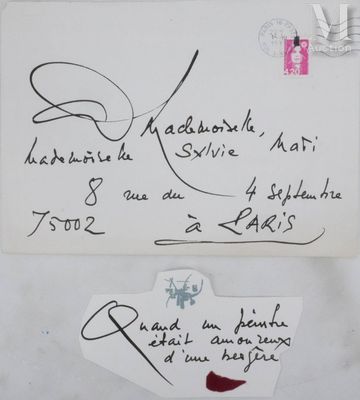 Vi
Auction
PARIS 16
4,20
Mademoiselle,
Mademoiselle Sylvie Mati
8 rue du 4 Septembre
75002 à PARIS
Quand un peintre
était amoureux
d'une bergère